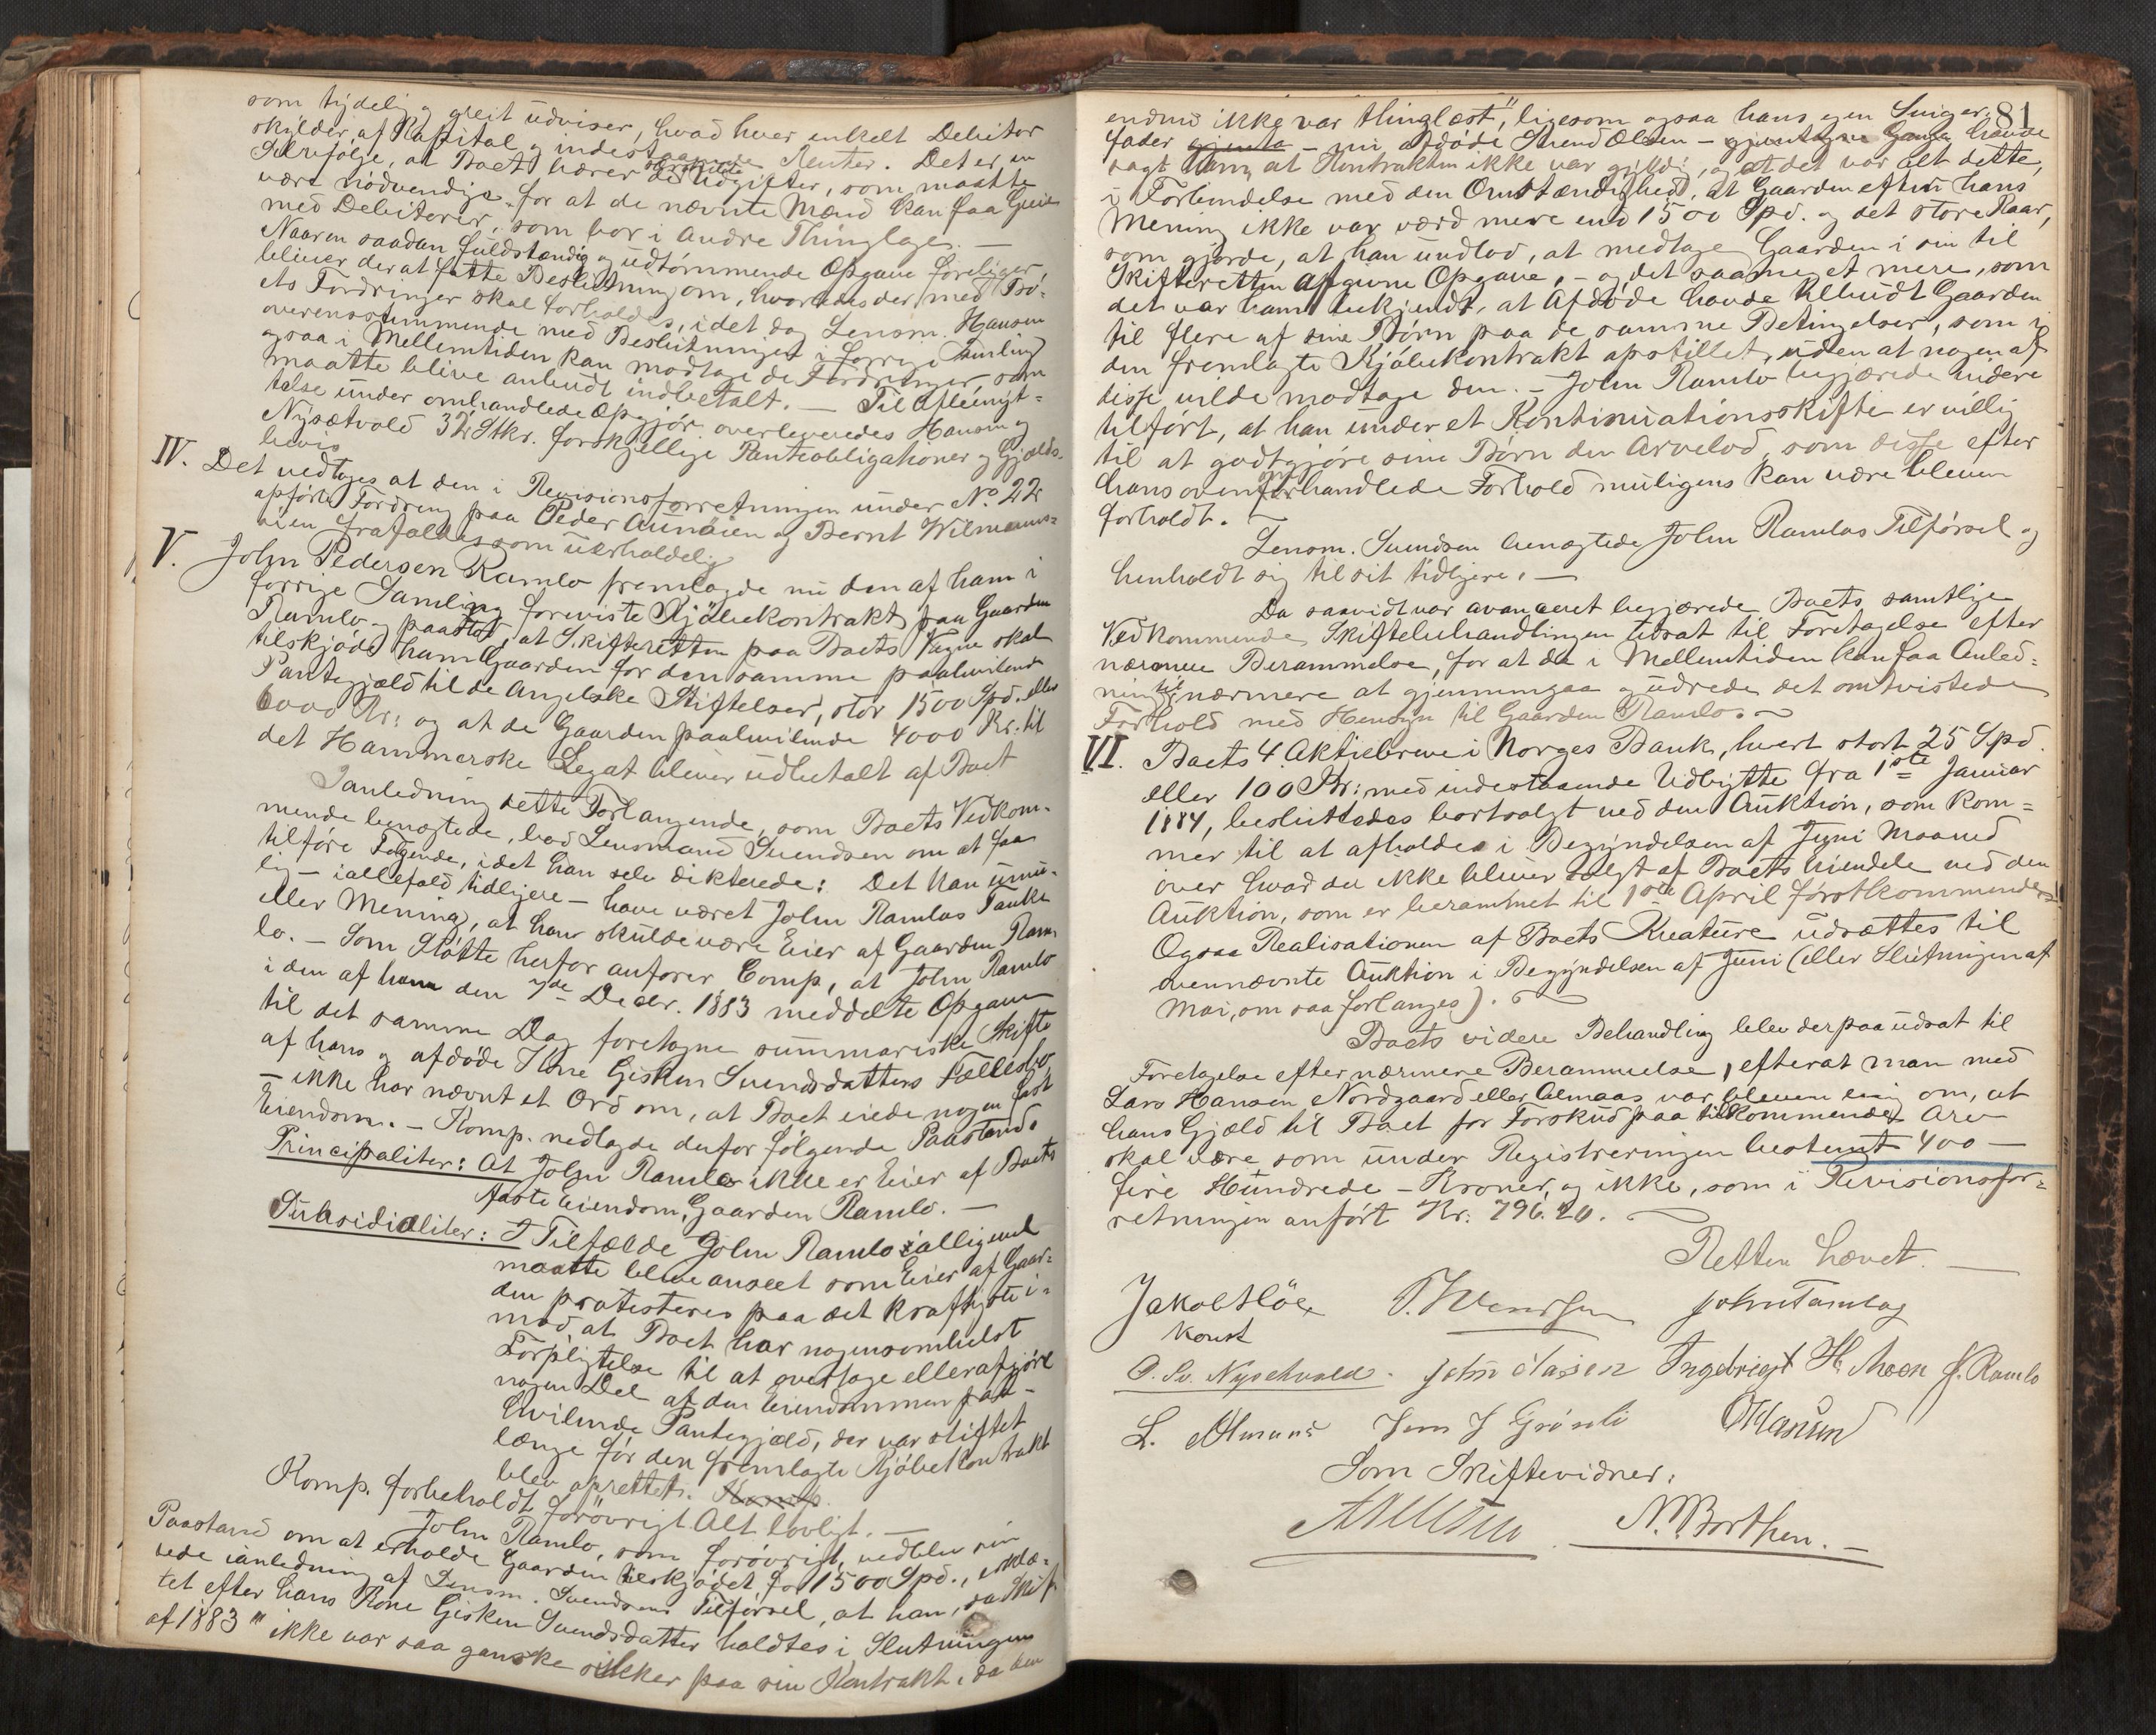 som tydelig og greit udviser, hvad hver enkelt Debitor
skylder af Kapital og indestaaende Renter. Det er en
Selvfølge, at Boet bærer de særskilte Udgifter, som maatte
være nødvendige for at de nævnte Mænd kan faa Greie
med Debitorer, som bor i andre Thinglage. —
Naar en saadan fuldstændig og udtømmende Opgave foreligger,
bliver der at fatte Beslutning om, hvorledes der med Bo-
ets Fordringer skal forholdes, idet dog Lensm. Hansen
overensstemmende med Beslutningen i forrige Samling
ogsaa i Mellemtiden kan modtage de Fordringer, som
maatte blive anbudt indbetalt. — Til Afbenyt-
telse under omhandlede Opgjør overleveredes Hansen og
Nysætvold 32 Stkr. forskjellige Panteobligationer og Gjælds-
bevis
IV. Det vedtoges at den i Revisionsforretningen under No 22
opførte Fordring paa Peder Aunøien og Bernt Wilmanns-
øien frafaldes som uerholdelig
V. John Pedersen Ramlo fremlagde nu den af ham i
forrige Samling foreviste Kjøbekontrakt paa Gaarden
Ramlo og paastod, at Skifteretten paa Boets Vegne skal
tilskjøde ham Gaarden for den samme paahvilende
Pantegjæld til de Angelske Stiftelser, stor 1500 Spd. eller
6000 Kr: og at de Gaarden paahvilende 4000 Kr. til
det Hammerske Legat bliver udbetalt af Boet
Ianledning dette Forlangende, som Boets Vedkom-
mende benægtede, bad Lensmand Svendsen om at faa
tilføre Følgende, idet han selv dikterede: Det kan umu-
lig – iallefald tidligere – have været John Ramlos Tanke
eller Mening, at han skulde være Eier af Gaarden Ram-
lo. – Som Støtte herfor anfører Comp, at John Ramlo
i den af ham den 7de Decbr. 1883 meddelte Opgave
til det samme Dag foretagne summariske Skifte
af hans og afdøde Kone Gisken Svendsdatters Fællesbo,
– ikke har nævnt et Ord om, at Boet eiede nogen fast
Eiendom. – Komp. nedlagde derfor følgende Paastand:
Principaliter: At John Ramlo ikke er Eier af Boets
faste Eiendom, Gaarden Ramlo. —
Subsidialiter: I Tilfælde John Ramlo ialligevel
maatte blive anseet som Eier af Gaar-
den protesteres paa det kraftigste i-
mod at Boet har nogensomhelst
Forpligtelse til at overtage eller afgjøre
nogen Del af den Eiendommen paa-
hvilende Pantegjæld, der var stiftet
længe før den fremlagte Kjøbekontrakt
blev oprettet. Komp.
Komp. forbeholdt forøvrigt Alt lovligt. —
John Ramlo, som forøvrigt, vedblev sin
Paastand om at erholde Gaarden tilskjødet for 1500 Spd., erklæ-
rede ianledning af Lensm. Svendsens Tilførsel, at han, da Skif-
tet efter hans Kone Gisken Svendsdatter holdtes i Slutningen
af 1883 "ikke var saa ganske sikker paa sin Kontrakt, da den
81
endnu ikke var thinglæst", ligesom ogsaa hans egen Sviger-
fader – nu afdøde Svend Olsen – gjentagne Gange havde
sagt ham, at Kontrakten ikke var gyldig, og at det var alt dette,
i Forbindelse med den Omstændighed, at Gaarden efter hans
Mening ikke var værd mere end 1500 Spd. og det store Kaar,
som gjorde, at han undlod, at medtage Gaarden i sin til
Skifteretten afgivne Opgave, – og det saameget mere, som
det var ham bekjendt, at Afdøde havde tilbudt Gaarden
til flere af sine Børn paa de samme Betingelser, som i
den fremlagte Kjøbekontrakt opstillet, uden at nogen af
disse vilde modtage den. – John Ramlo begjærede videre
tilført, at han under et Kontinuationsskifte er villig
til at godtgjøre sine Børn den Arvelod, som disse efter
hans ovenomhandlede Forhold muligens kan være bleven
forholdt. —
Lensm. Svendsen benægtede John Ramlos Tilførsel og
henholdt sig til sit tidligere. —
Da saavidt var avanceret begjærede Boets samtlige
Vedkommende Skiftebehandlingen udsat til Foretagelse efter
nærmere Berammelse, for at de i Mellemtiden kan faa Anled-
ning til nærmere at gjennemgaa og udrede det omtvistede
Forhold med Hensyn til Gaarden Ramlo. —
VI. Boets 4 Aktiebreve i Norges Bank, hvert stort 25 Spd.
eller 100 Kr: med indestaaende Udbytte fra 1ste Januar
1884, besluttedes bortsolgt ved den Auktion, som kom-
mer til at afholdes i Begyndelsen af Juni Maaned
over hvad der ikke bliver solgt af Boets Eiendele ved den
Auktion, som er berammet til 1ste April førstkommende.
Ogsaa Realisationen af Boets Kreature udsættes til
ovennævnte Auktion i Begyndelsen af Juni (eller Slutningen af
Mai, om saa forlanges). —
Boets videre Behandling blev derpaa udsat til
Foretagelse efter nærmere Berammelse, efterat man med
Lars Hansen Nordgaard eller Almaas var bleven enig om, at
hans Gjæld til Boet for Forskud paa tilkommende Arv
skal være som under Registreringen bestemt 400 —
fire Hundrede – Kroner, og ikke, som i Revisionsfor-
retningen anført Kr: 796.20. —
Retten hævet. —
Jakob Høe T. Svendsen John Tamlag
konst
O. Sv. Nysetvold. John Aasen Ingebrigt H. Moen J. Ramlo
L. Almaas Jens J Grøsli O Hansen
Som Skiftevidner:
N. Borthen. —